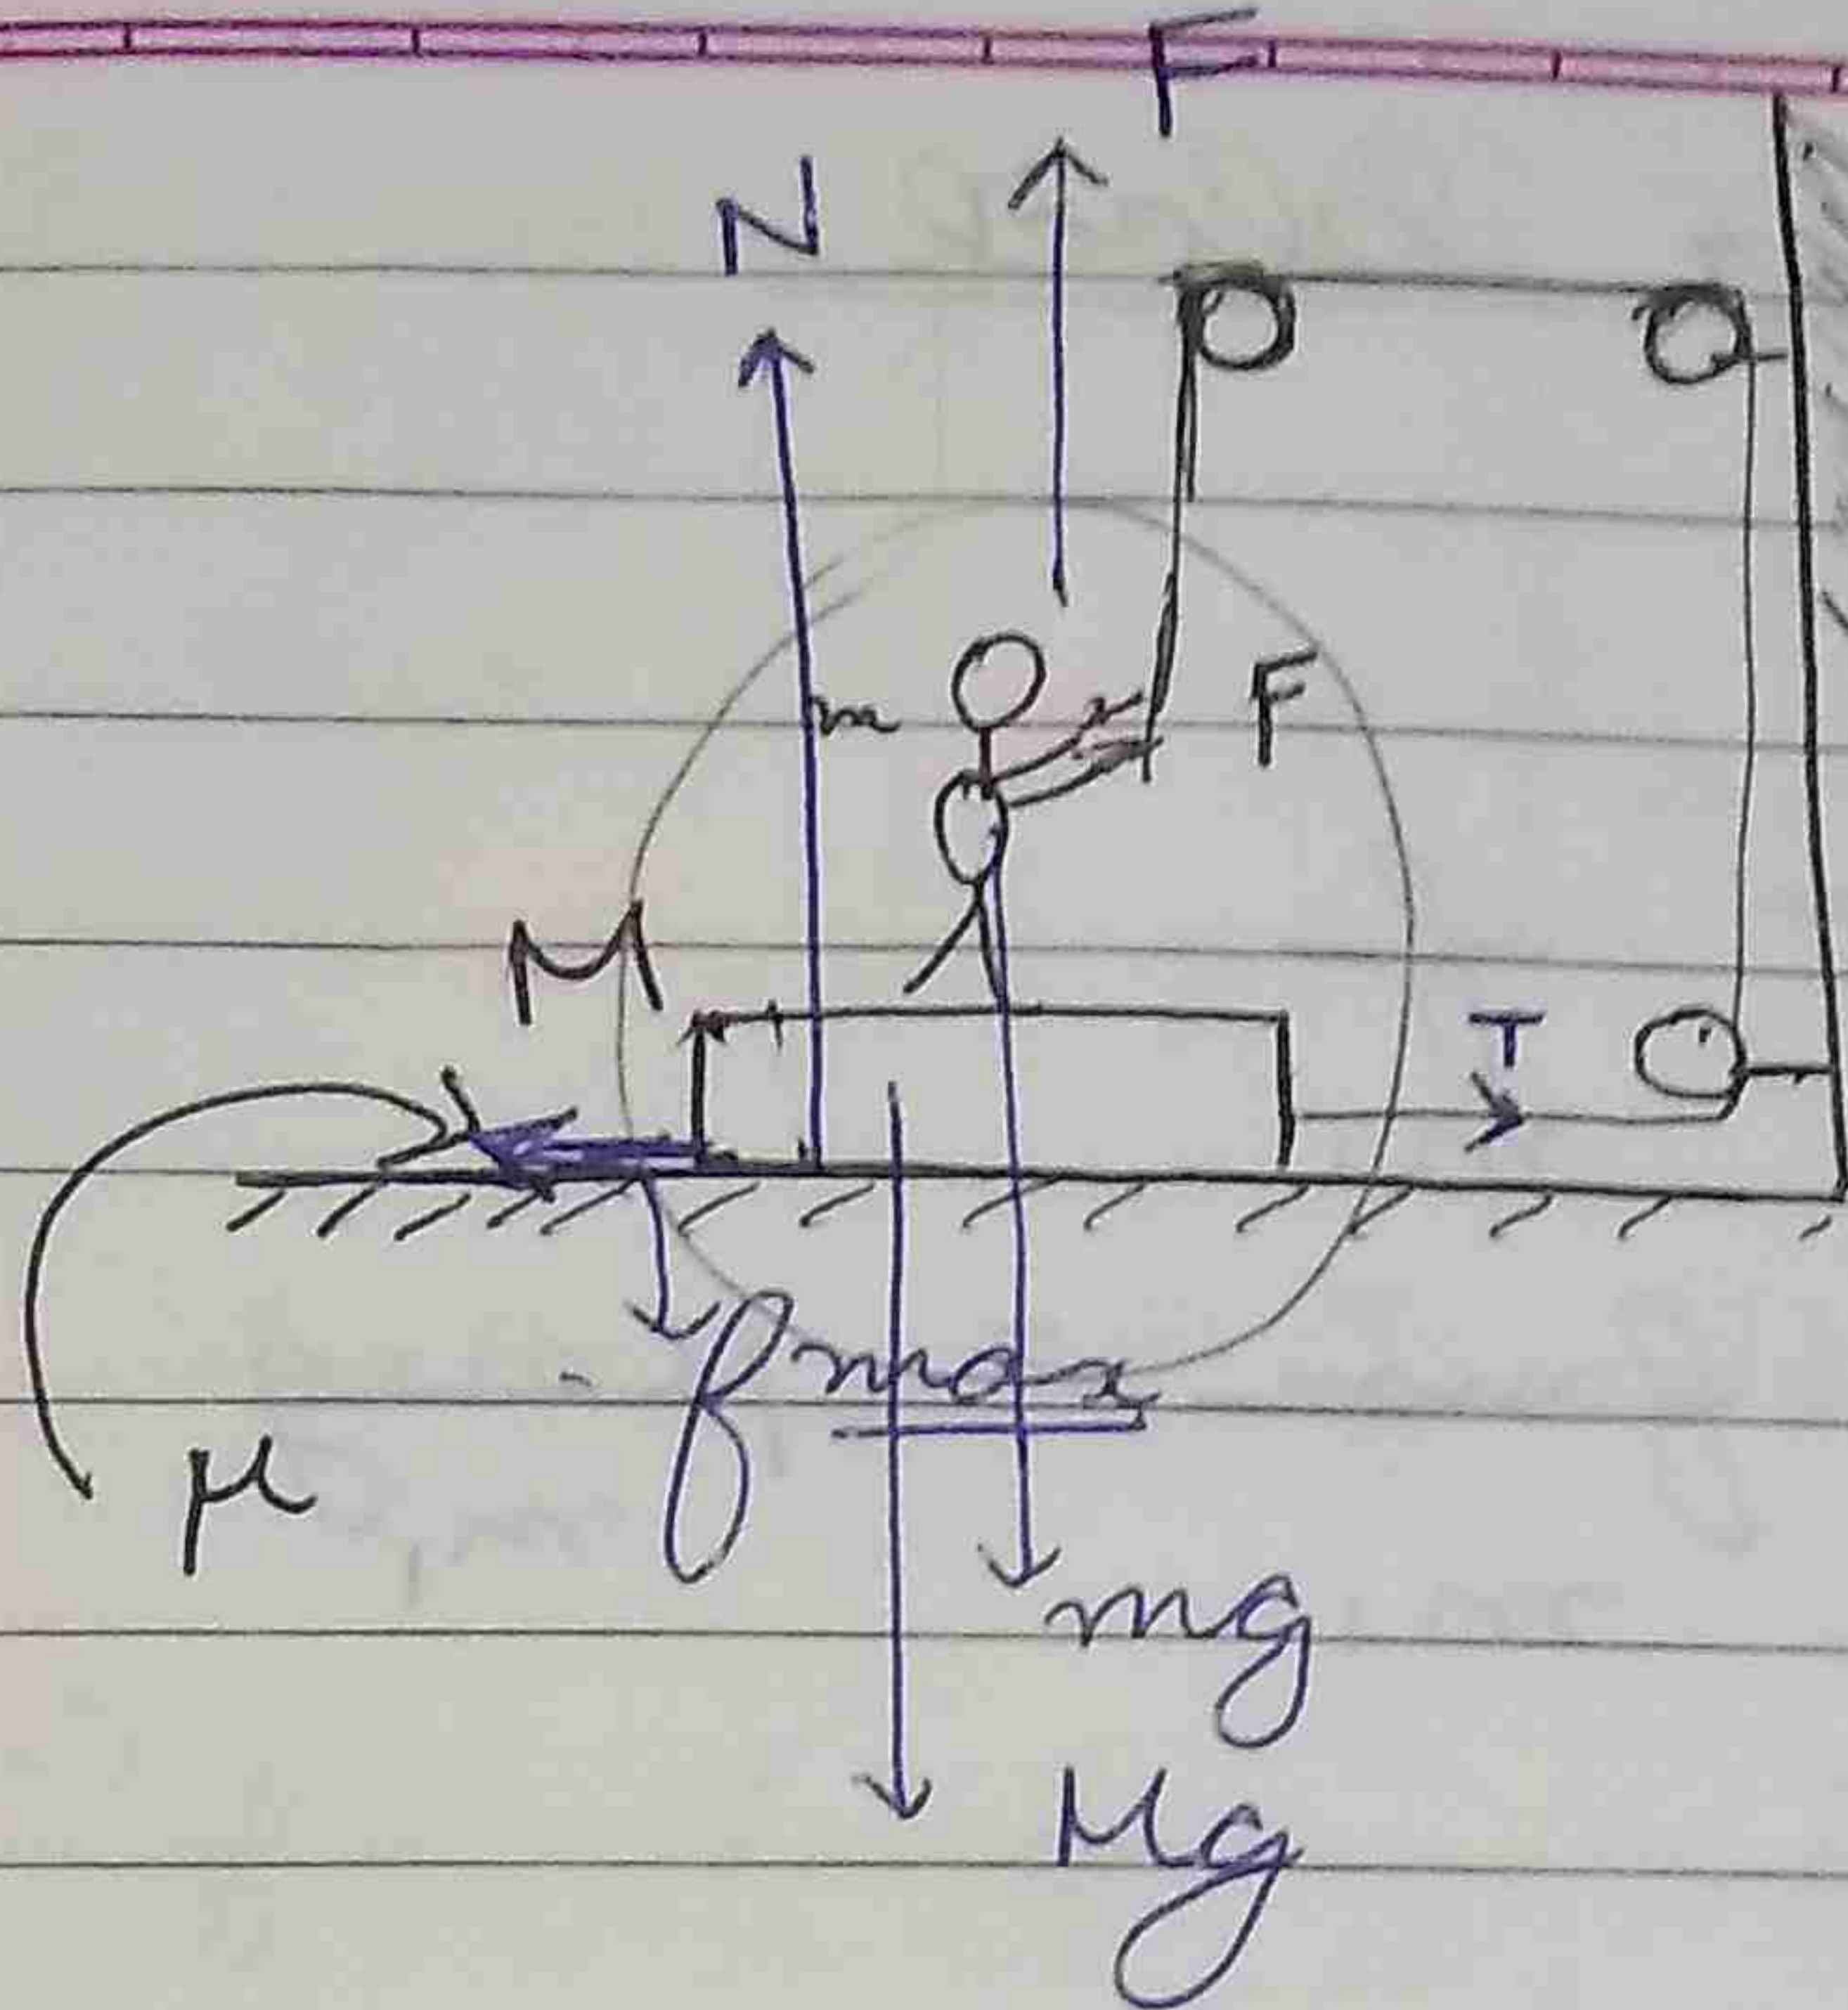 F
N
m
F
M
T
fmax
μ
mg
Mg